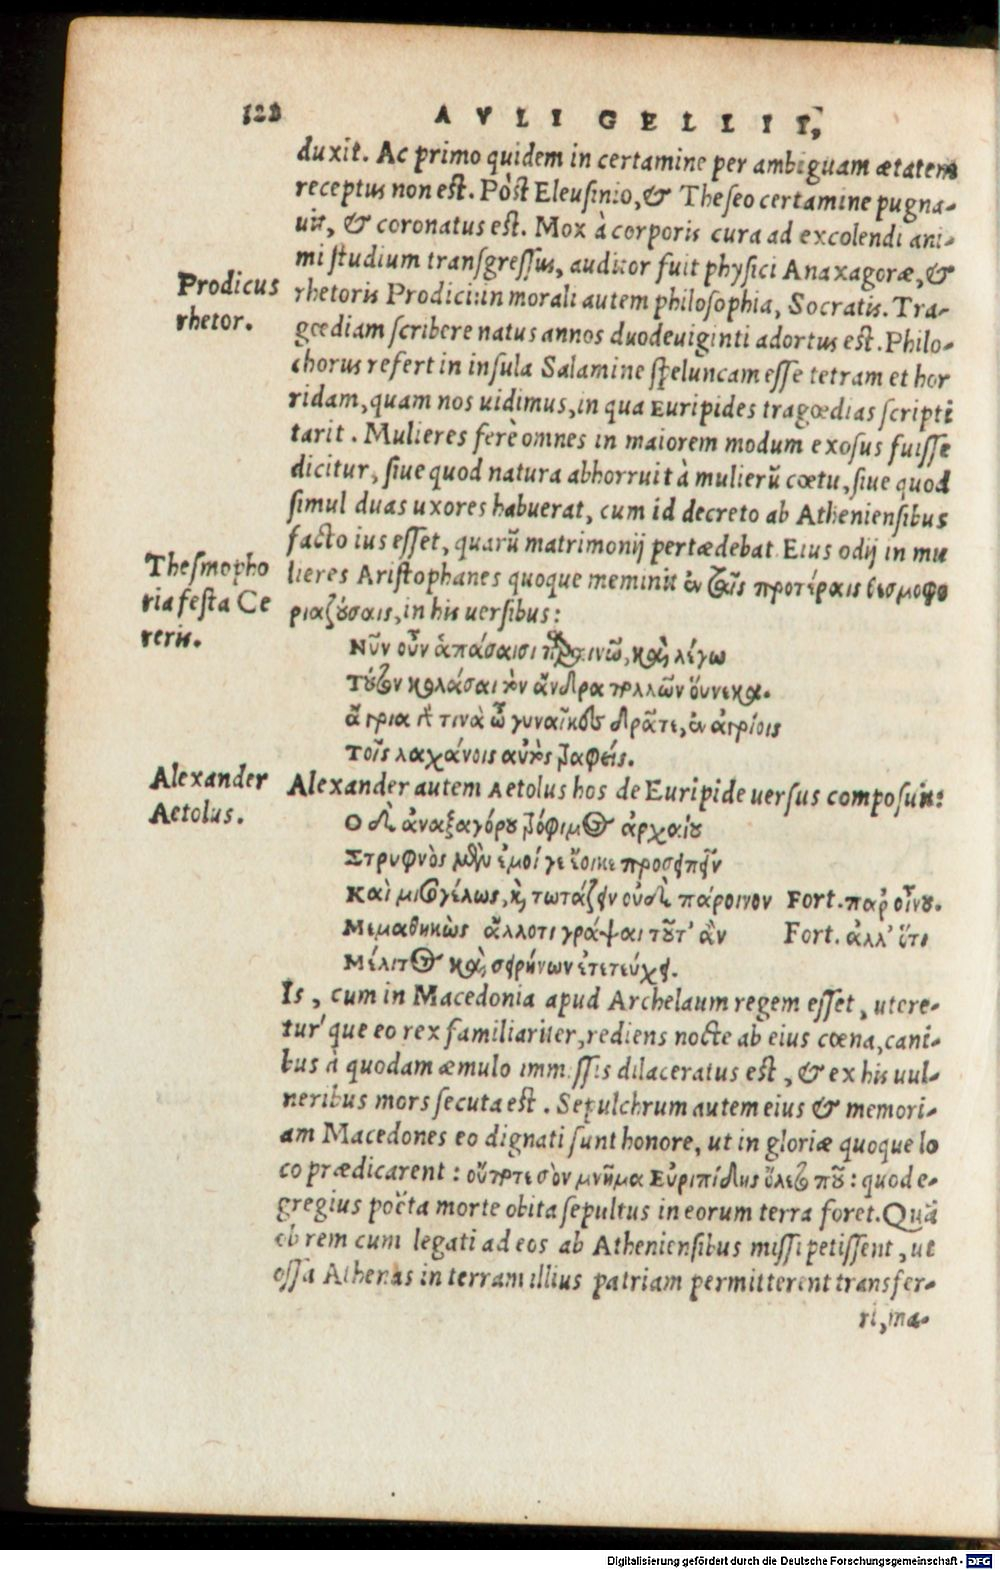 122 AVLI GELLII,
duxit. Ac primo quidem in certamine per ambiguam ætatem
receptus non est. Pòst Eleusinio, & Theseo certamine pugna-
uit, & coronatus est. Mox à corporis cura ad excolendi ani-
mi studium transgressus, auditor fuit physici Anaxagoræ, &
Prodicus
rhetor.
rhetoris Prodici: in morali autem philosophia, Socratis. Tra-
gœdiam scribere natus annos duodeuiginti adortus est. Philo-
chorus refert in insula Salamine speluncam esse tetram et hor
ridam, quam nos uidimus, in qua Euripides tragœdias scripti
tarit. Mulieres ferè omnes in maiorem modum exosus fuisse
dicitur, siue quod natura abhorruit à mulierũ cœtu, siue quod
simul duas uxores habuerat, cum id decreto ab Atheniensibus
facto ius esset, quarũ matrimonij pertædebat. Eius odij in mu
Thesmopho
ria festa Ce
reris.
lieres Aristophanes quoque meminit ἐν ταῖς προτέραις θεσμοφο
ριαζούσαις, in his uersibus:
Νῦν οὖν ἁπάσαισι παραινῶ, καὶ λέγω
Τοῦτον κολάσαι τὸν ἄνδρα πολλῶν οὕνεκα.
ἄγρια γὰρ τινὰ ὦ γυναῖκες δρᾶτε, ἐν ἀγρίοις
Τοῖς λαχάνοις αὐτὸς
Alexander
Aetolus.
Alexander autem Aetolus hos de Euripide uersus composuit:
Ο δ' ἀναξαγόρου τρόφιμος ἀρχαίου
Στρυφνὸς μὲν ἐμοί γε ἔοικε προσειπεῖν
Καὶ μισογέλως, καὶ τωτάζειν οὐδὲ πάροινον Fort. παρ' οἶνον.
Μεμαθηκὼς ἄλλοτι γράψαι τοῦτ' ἂν Fort. ἀλλ' ὅτι
Μέλιτος καὶ σειρήνων ἐτετεύχει.
Is, cum in Macedonia apud Archelaum regem esset, utere-
tur'que eo rex familiariter, rediens nocte ab eius cœna, cani-
bus à quodam æmulo immissis dilaceratus est, & ex his uul-
neribus mors secuta est. Sepulchrum autem eius & memori-
am Macedones eo dignati sunt honore, ut in gloriæ quoque lo
co prædicarent: οὔποτε σὸν μνῆμα Εὐριπίδης ὄλετό που: quod e-
gregius poëta morte obita sepultus in eorum terra foret. Quã
ob rem cum legati ad eos ab Atheniensibus missi petissent, ut
ossa Athenas in terram illius patriam permitterent transfer-
ri, ma-
Digitalisierung gefördert durch die Deutsche Forschungsgemeinschaft - DFG